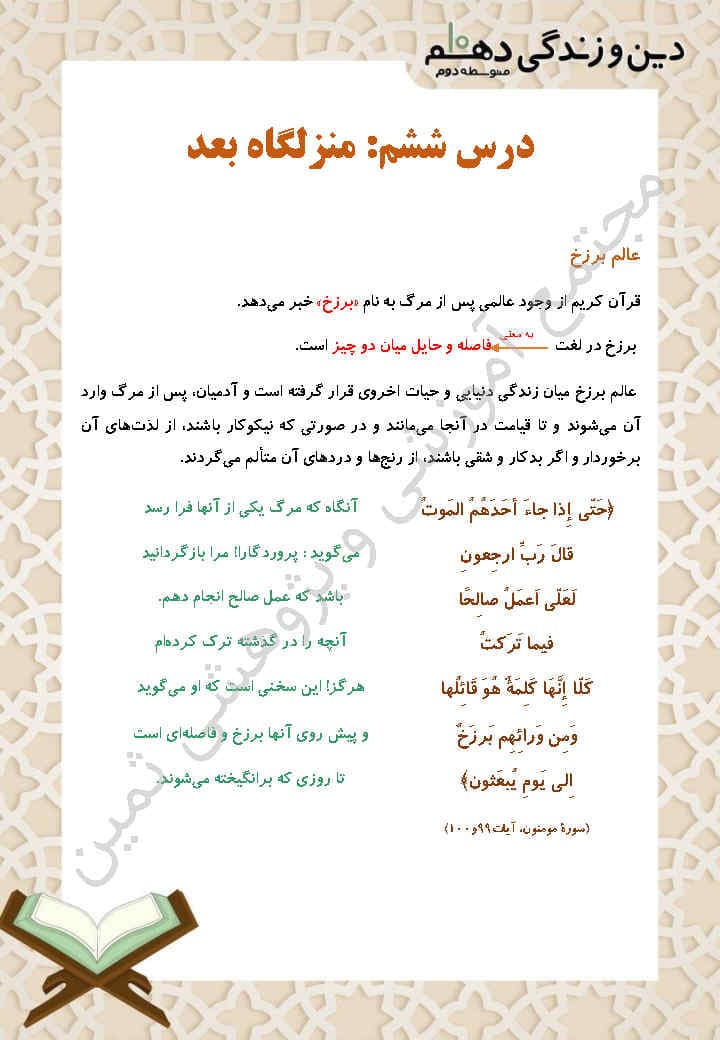 دین و زندگی دهم ۱۰
متوسطه دوم
درس ششم: منزلگاه بعد
عالم برزخ
قرآن کریم از وجود عالمی پس از مرگ به نام «برزخ» خبر می‌دهد.
برزخ در لغت به معنی فاصله و حایل میان دو چیز است.
عالم برزخ میان زندگی دنیایی و حیات اخروی قرار گرفته است و آدمیان، پس از مرگ وارد
آن می‌شوند و تا قیامت در آنجا می‌مانند و در صورتی که نیکوکار باشند، از لذت‌های آن
برخوردار و اگر بدکار و شقی باشند، از رنج‌ها و دردهای آن متألم می‌گردند.
﴿حَتّی إِذا جاءَ أحَدَهُمُ المَوتُ آنگاه که مرگ یکی از آنها فرا رسد
قالَ رَبِّ ارجِعونِ می‌گوید : پروردگارا! مرا بازگردانید
لَعَلّی اَعمَلُ صالِحًا باشد که عمل صالح انجام دهم.
فیما تَرَکتُ آنچه را در گذشته ترک کرده‌ام
کَلّا إِنَّهَا کَلِمَةٌ هُوَ قَائِلُها هرگز! این سخنی است که او می‌گوید
وَمِن وَرائِهِم بَرزَخٌ و پیش روی آنها برزخ و فاصله‌ای است
اِلی یَومِ یُبعَثون﴾ تا روزی که برانگیخته می‌شوند.
(سورهٔ مومنون، آیات ۹۹و۱۰۰)
مجتمع آموزشی و پژوهشی ثمین